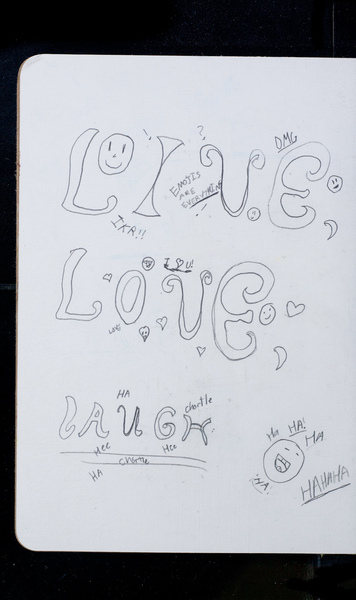 OMG
LIVE
?
EMOJIS
ARE
EVERYTHING
IKR!!
I ♡ U!
LOVE
HA
chortle
LAUGH
HEE
Hee
chortle
HA
Ha HA!
HA
HA!
HAHAHA